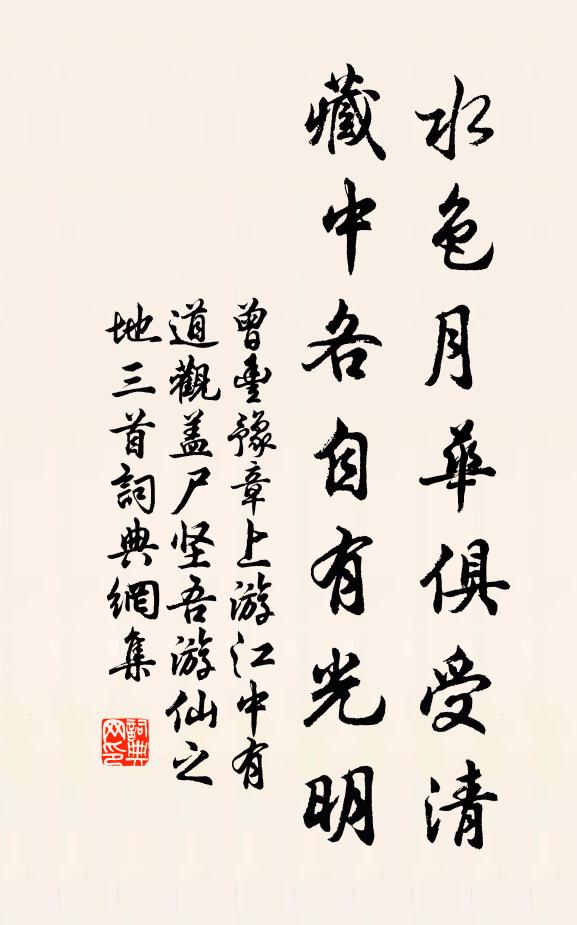 水色月華俱受清
藏中各自有光明
曾豊豫章上游江中有
道觀盖尸坚吾游仙之
地三首詞典網集
詞典网印